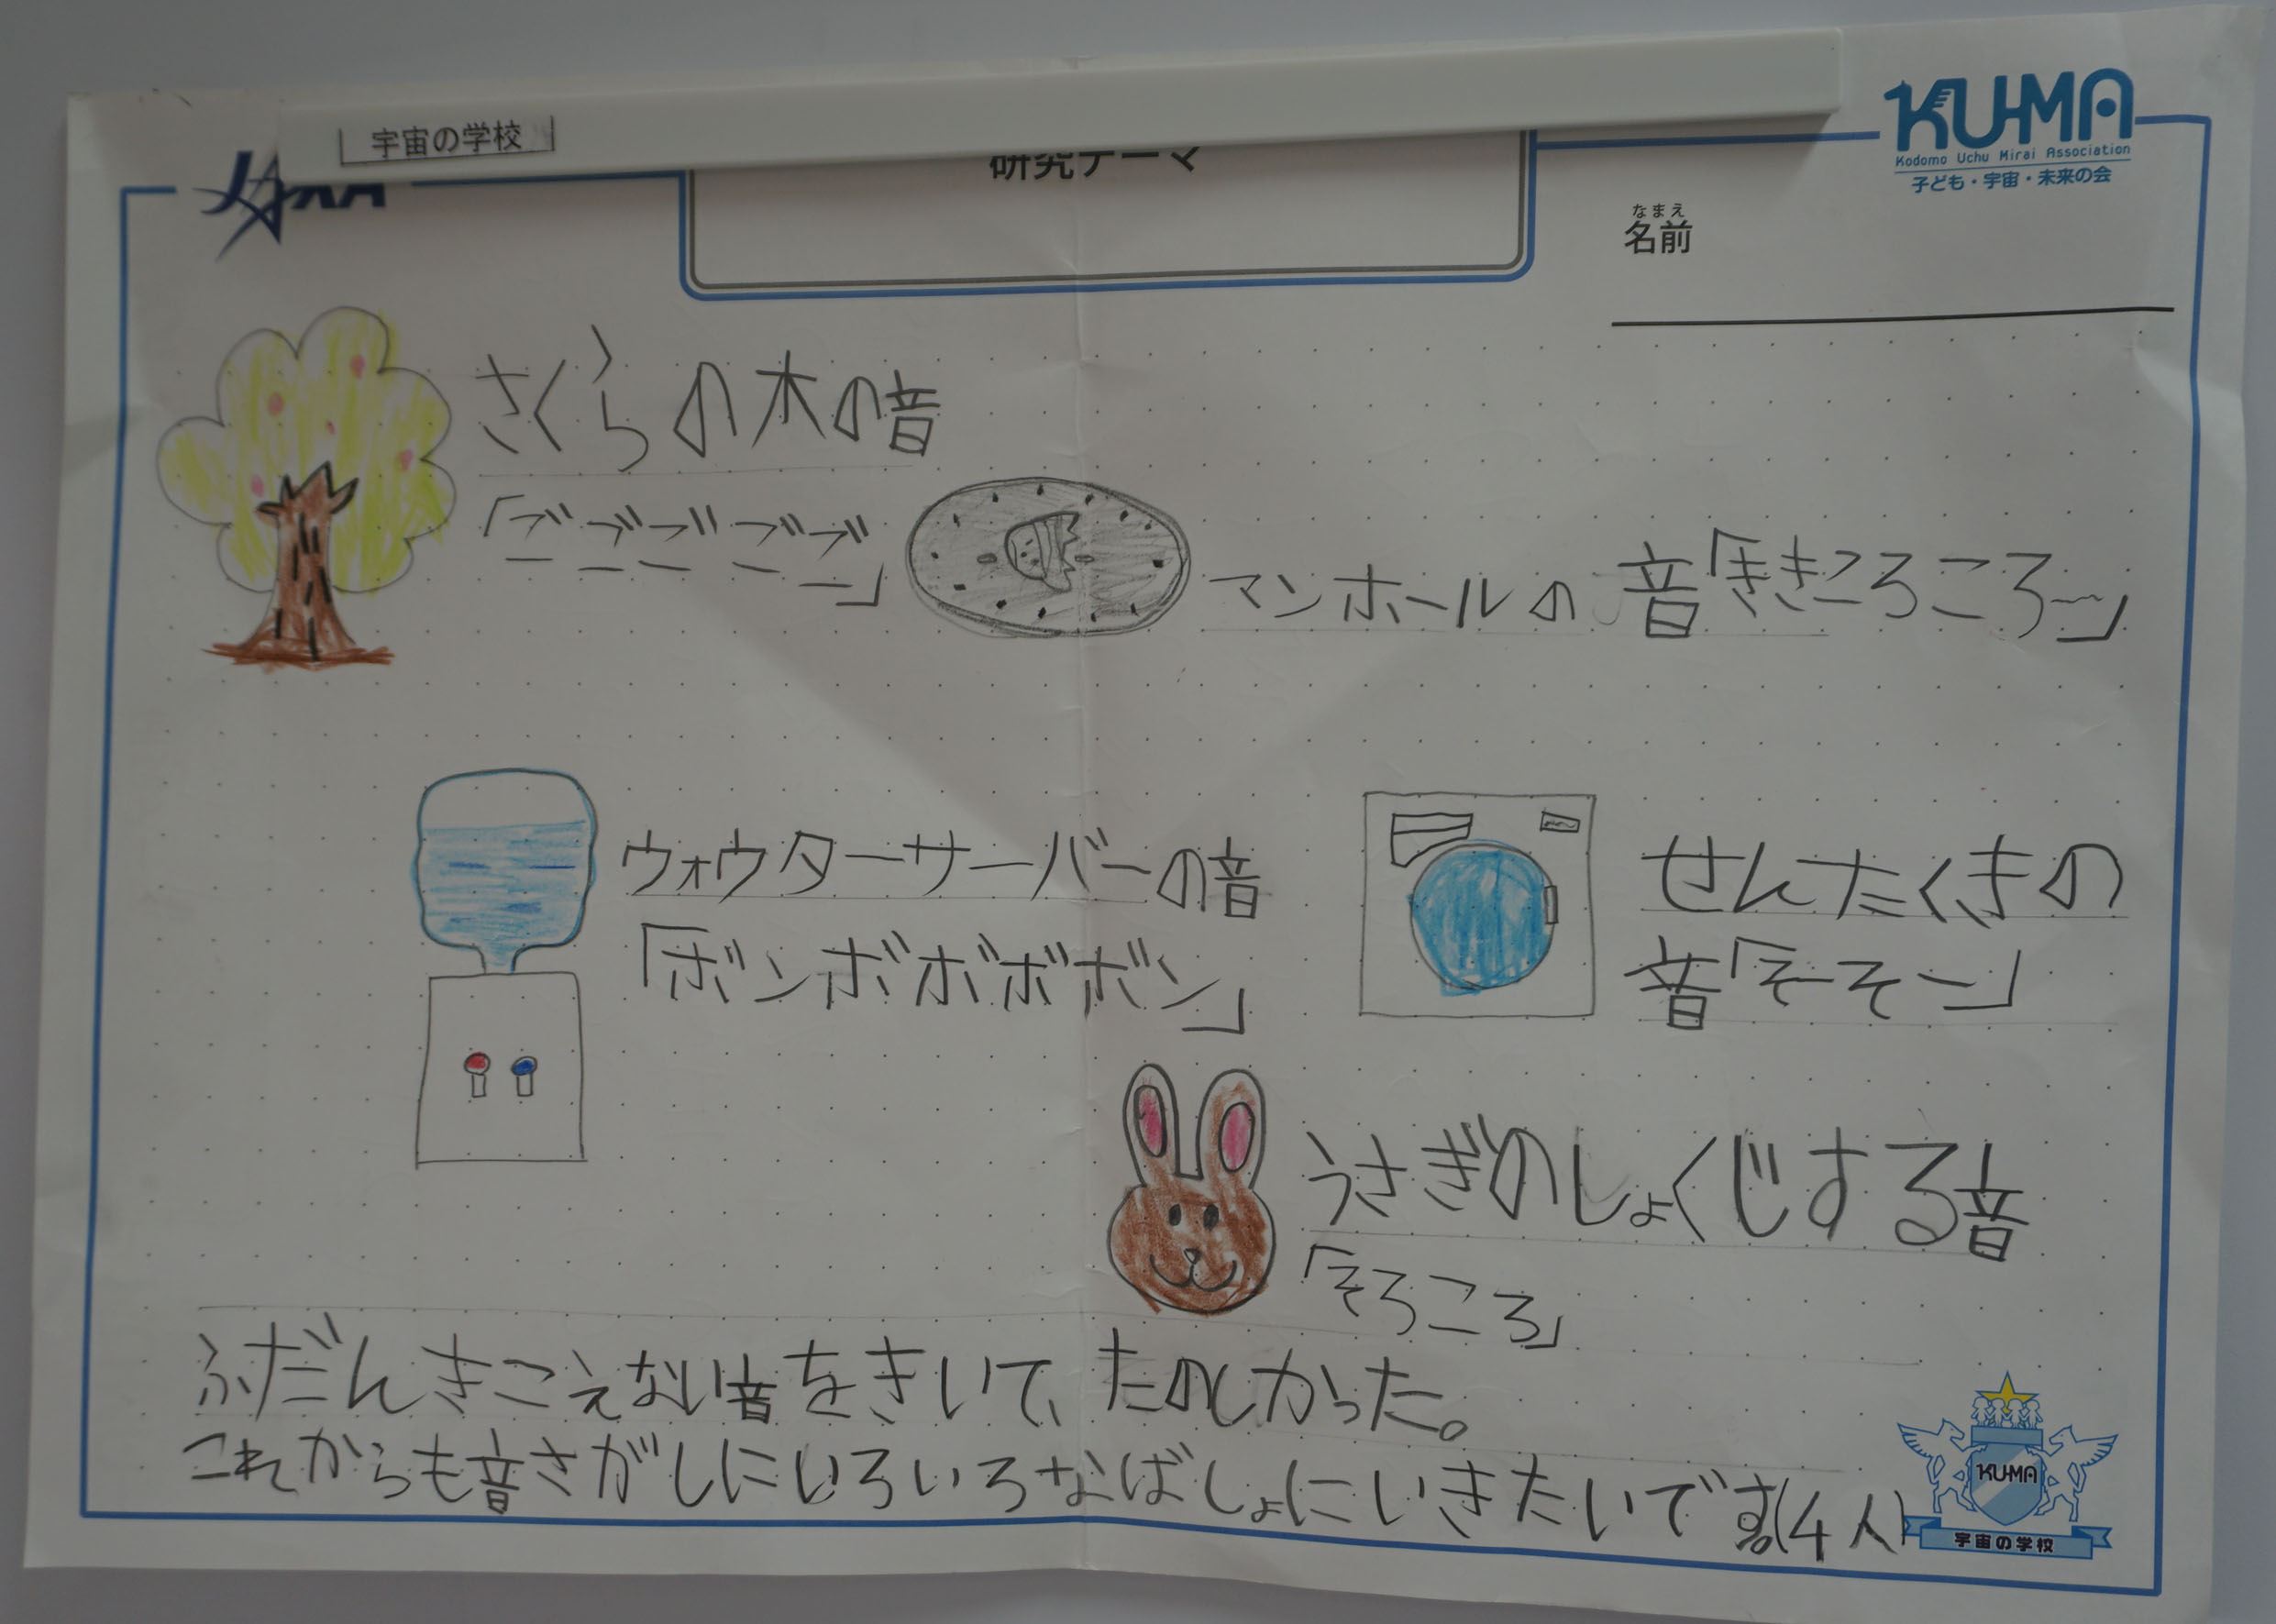 宇宙の学校
JAXA
研究テーマ
KU-MA
Kodomo Uchu Mirai Association
子ども・宇宙・未来の会
なまえ
名前
さくらの木の音
「ゴゴゴゴゴ」
マンホールの音「ききころころ〜」
ウォウターサーバーの音
「ボンボボボボン」
せんたくきの
音「そーそー」
うさぎのしょくじする音
「そろころ」
ふだんきこえない音をきいて、たのしかった。
これからも音さがしにいろいろなばしょにいきたいです。(4人)
KU-MA
宇宙の学校